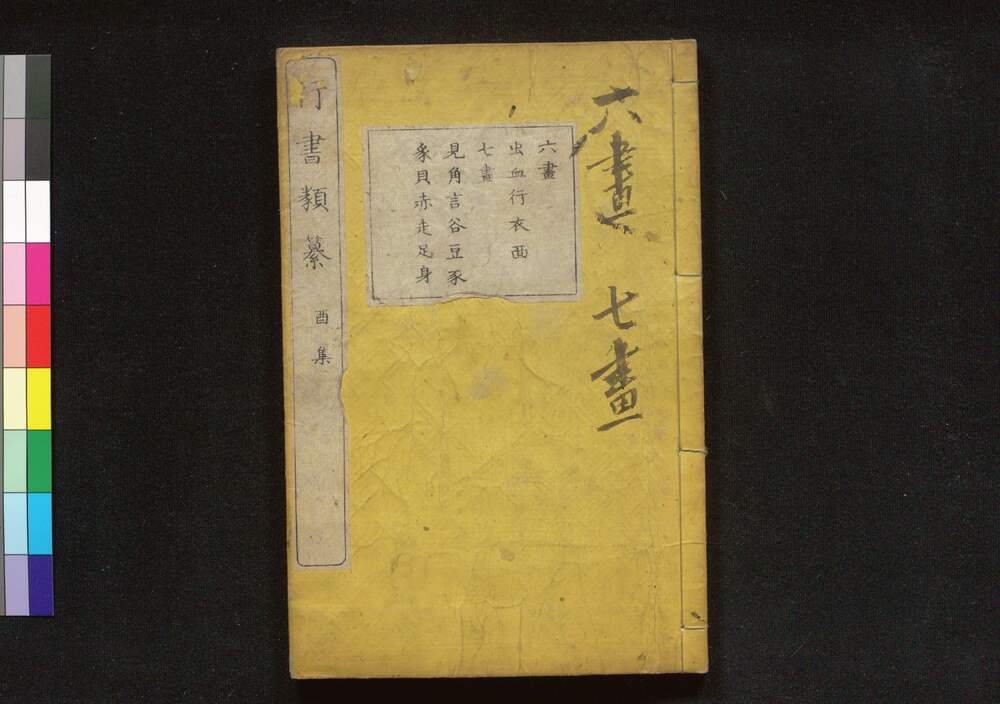 六畫 七畫
六畫
虫血行衣襾
七畫
見角言谷豆豕
豸貝赤走足身
行書類纂 酉集